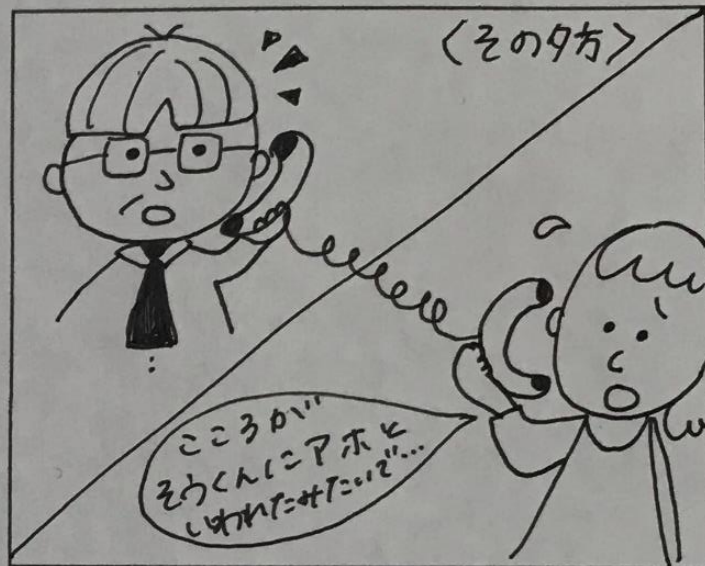 〈その夕方〉
こころが
そうくんにアホと
いわれたみたいで…